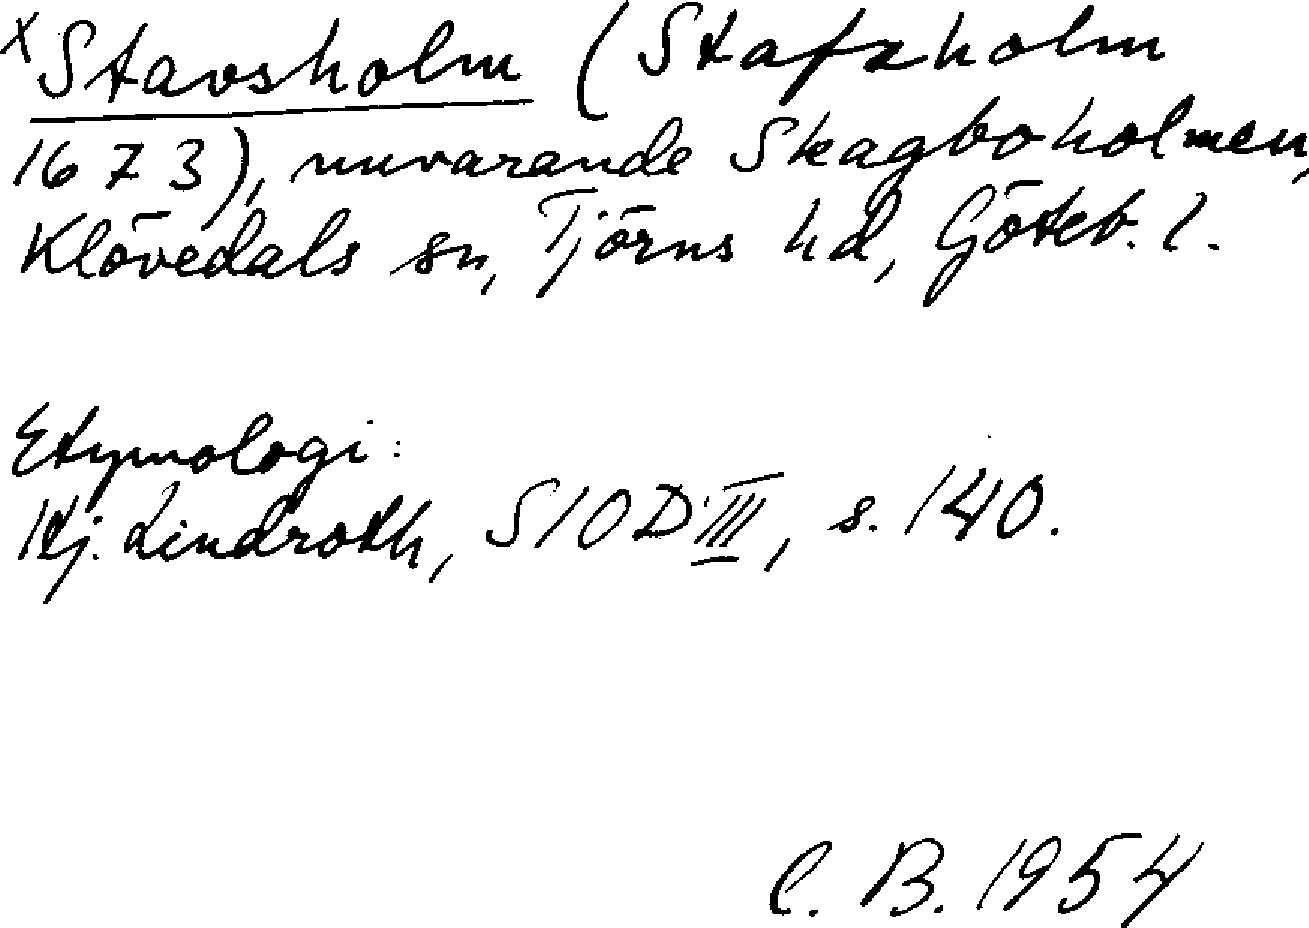 x Stavsholm (Stafzholm
1673), nuvarande Skagboholmen,
Klövedals sn, Tjörns hd, Göteb. l.
Etymologi:
Hj. Lindroth, SIOD III, s. 140.
C. B. 1954